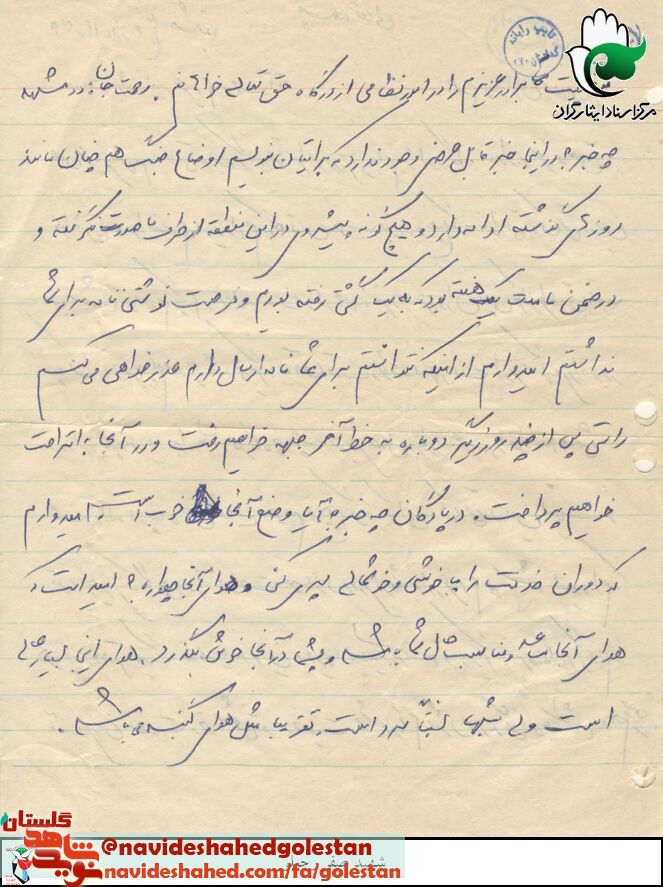 برادر عزیزم را در امور نظامی از درگاه حق تعالی خواهانم. رحمت جان در مشهد
چه خبر؟ در اینجا خبر قابل عرضی وجود ندارد که برایتان بنویسم اوضاع جنگ هم چنان مانند
روزهای گذشته ادامه دارد و هیچ گونه پیشروی در این منطقه از طرف ما صورت نگرفته و
در ضمن مدت یک هفته بود که به یک گشتی رفته بودیم و فرصت نوشتن نامه برای شما
نداشتم امیدوارم از اینکه نتوانستم برای شما نامه ارسال دارم عذر خواهی می کنم
راستی پس از چند روز دیگر دوباره به خط آخر جبهه خواهیم رفت و در آنجا به استراحت
خواهیم پرداخت. در پادگان چه خبر؟ آیا وضع آنجا خوب است. امیدوارم
که دوران خدمت را با خوشی و خوشحالی سپری کنی و هوای آنجا چطوره؟ امید است که
هوای آنجا مساعد و مناسب حال شما باشد و بشما در آنجا خوش بگذرد. هوای اینجا بسیار عالی
است ولی شبها نسبتا سرد است. تقریبا مثل هوای گنبد می باشد.
مرکز اسناد ایثارگران
گلستان
نوید شاهد
@navideshahedgolestan
navideshahed.com/fa/golestan